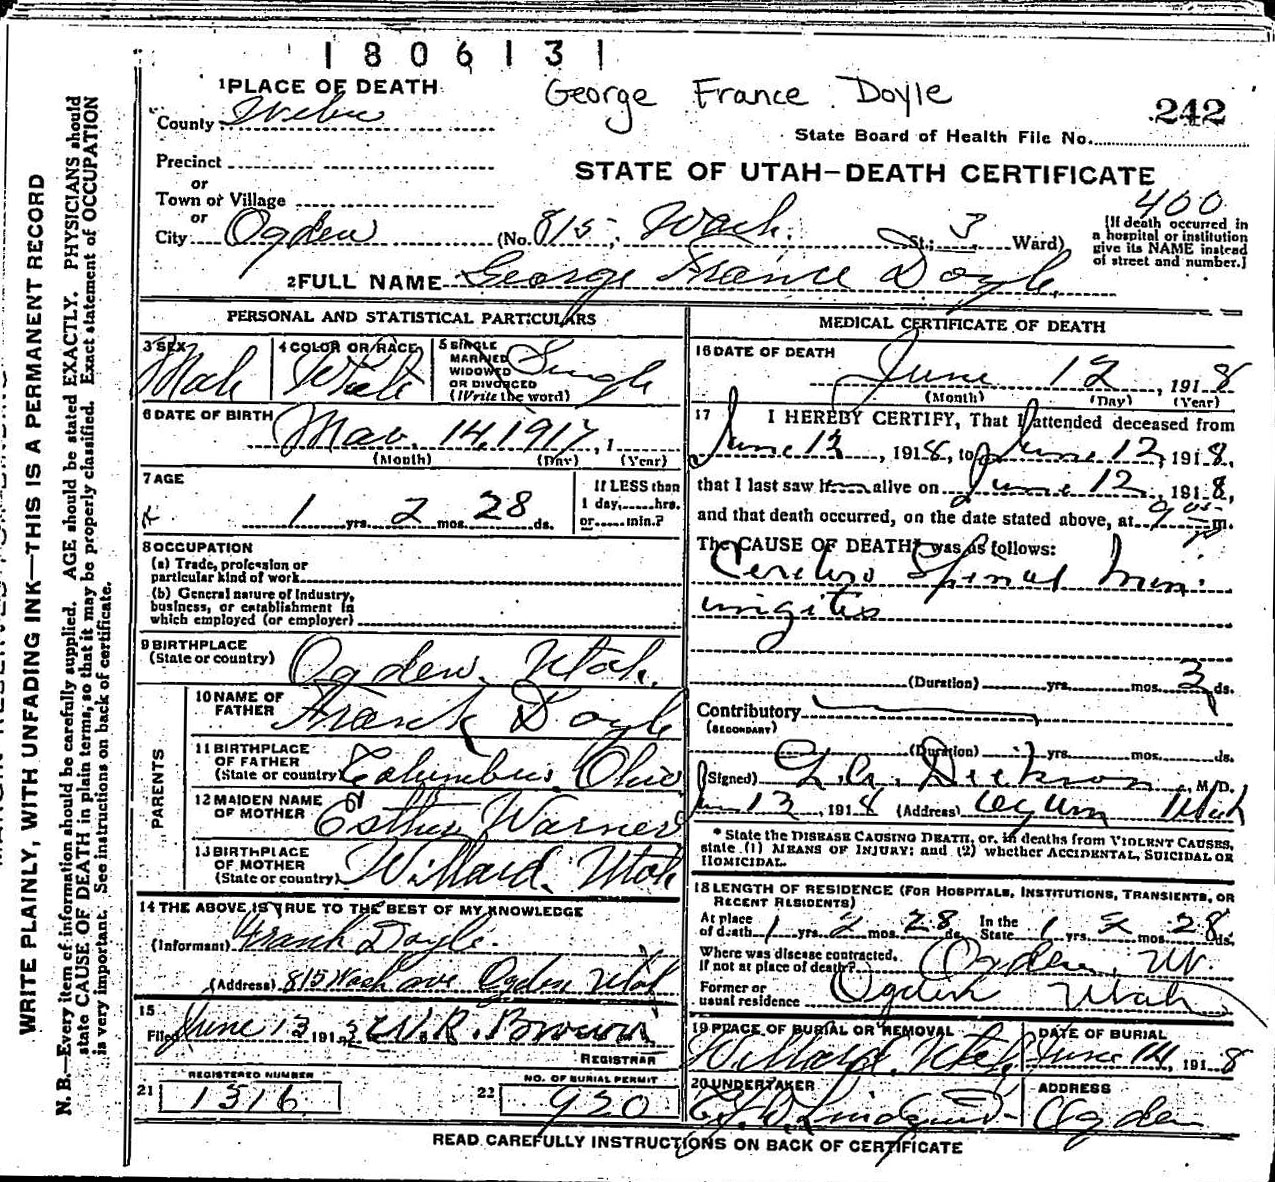 1806131
George France Doyle
242
State Board of Health File No.
STATE OF UTAH—DEATH CERTIFICATE
1 PLACE OF DEATH
County Weber
Precinct
or
Town or Village
or
City Ogden (No. 815, Wash. St.; 3 Ward)
400
[If death occurred in a hospital or institution give its NAME instead of street and number.]
2 FULL NAME George France Doyle
PERSONAL AND STATISTICAL PARTICULARS
3 SEX Male
4 COLOR OR RACE White
5 SINGLE MARRIED WIDOWED OR DIVORCED (Write the word) Single
6 DATE OF BIRTH Mar. 14, 1917, 1
(Month) (Day) (Year)
7 AGE
1 yrs. 2 mos. 28 ds.
If LESS than 1 day,......hrs. or......min.?
8 OCCUPATION
(a) Trade, profession or particular kind of work
(b) General nature of Industry, business, or establishment in which employed (or employer)
9 BIRTHPLACE (State or country) Ogden, Utah.
PARENTS
10 NAME OF FATHER Frank Doyle
11 BIRTHPLACE OF FATHER (State or country) Columbus, Ohio
12 MAIDEN NAME OF MOTHER Esther Warner
13 BIRTHPLACE OF MOTHER (State or country) Willard, Utah
14 THE ABOVE IS TRUE TO THE BEST OF MY KNOWLEDGE
(Informant) Frank Doyle.
(Address) 815 Wash ave Ogden Utah
15
Filed June 13 191 W.R. Brown
REGISTRAR
21 REGISTERED NUMBER 1316
22 NO. OF BURIAL PERMIT 920
MEDICAL CERTIFICATE OF DEATH
16 DATE OF DEATH
June 12, 1918
(Month) (Day) (Year)
17 I HEREBY CERTIFY, That I attended deceased from
June 12, 1918, to June 12, 1918,
that I last saw him alive on June 12, 1918,
and that death occurred, on the date stated above, at 9 m.
The CAUSE OF DEATH* was as follows:
Cerebro Spinal Men
ingites
(Duration) yrs. mos. 3 ds.
Contributory
(SECONDARY)
(Duration) yrs. mos. ds.
(Signed) Dickson, M.D.
June 13, 1918 (Address) Utah
* State the DISEASE CAUSING DEATH, or, in deaths from VIOLENT CAUSES, state (1) MEANS OF INJURY; and (2) whether ACCIDENTAL, SUICIDAL OR HOMICIDAL.
18 LENGTH OF RESIDENCE (FOR HOSPITALS, INSTITUTIONS, TRANSIENTS, OR RECENT RESIDENTS)
At place of death 1 yrs. 2 mos. 28 ds. In the State 1 yrs. 2 mos. 28 ds.
Where was disease contracted, If not at place of death? Ogden, Ut.
Former or usual residence Ogden Utah
19 PLACE OF BURIAL OR REMOVAL Willard, Utah,
DATE OF BURIAL June 14, 1918
20 UNDERTAKER Lindquist
ADDRESS Ogden
READ CAREFULLY INSTRUCTIONS ON BACK OF CERTIFICATE
WRITE PLAINLY, WITH UNFADING INK—THIS IS A PERMANENT RECORD
N. B.—Every item of information should be carefully supplied. AGE should be stated EXACTLY. PHYSICIANS should
state CAUSE OF DEATH in plain terms, so that it may be properly classified. Exact statement of OCCUPATION
is very important. See instructions on back of certificate.